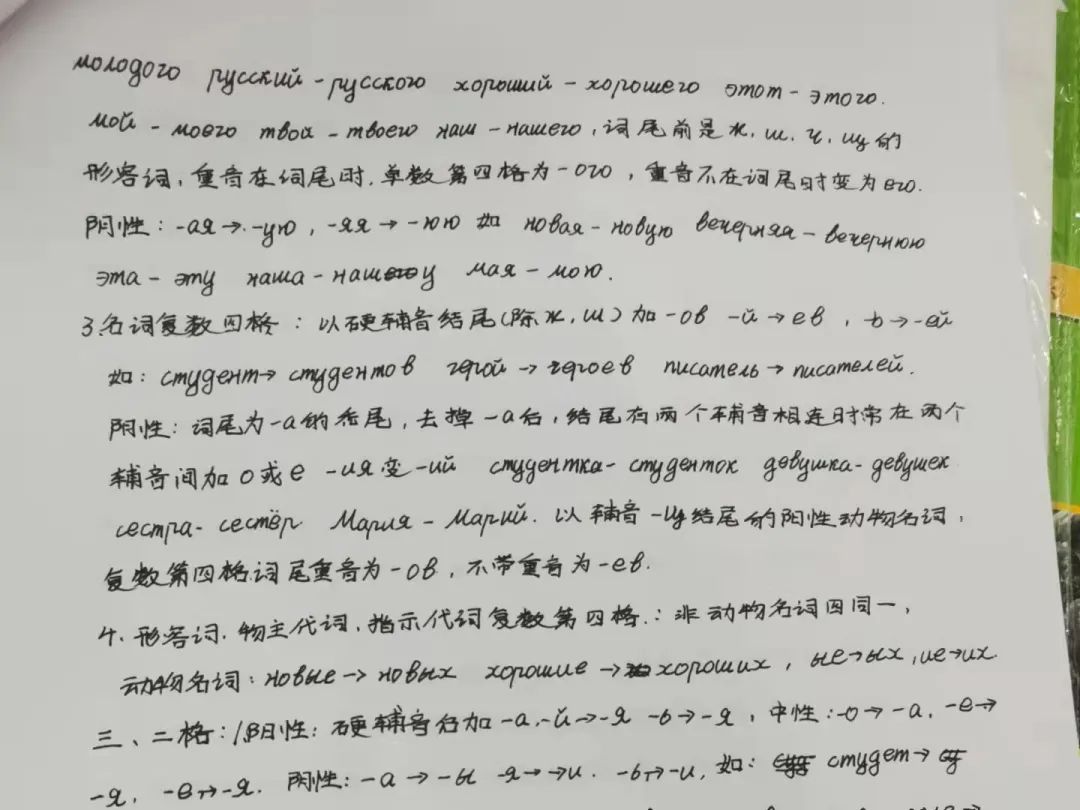 молодого русский-русского хороший-хорошего этот-этого.
мой-моего твой-твоего наш-нашего, 词尾前是ж, ш, ч, щ的
形容词, 重音在词尾时, 单数第四格为-ого, 重音不在词尾时变为его.
阴性: -ая→-ую, -яя→-юю 如 новая-новую вечерняя-вечернюю
эта-эту наша-нашу мая-мою.
3.名词复数四格: 以硬辅音结尾(除ж, ш)加-ов -й→ев, -ь→-ей
如: студент→студентов герой→героев писатель→писателей.
阴性: 词尾为-а的秃尾, 去掉-а后, 结尾有两个辅音相连时常在两个
辅音间加о或е -ия变-ий студентка-студенток девушка-девушек
сестра-сестёр Мария-Марий. 以辅音-ц结尾的阳性动物名词,
复数第四格词尾重音为-ов, 不带重音为-ев.
4. 形容词. 物主代词. 指示代词复数第四格.: 非动物名词四同一,
动物名词: новые→новых хорошие→хороших, ые→ых, ие→их.
三、二格: 阳性: 硬辅音后加-а, -й→-я -ь→-я, 中性: -о→-а, -е→
-я. -е→-я. 阴性: -а→-ы -я→-и. -ь→-и, 如: студет→